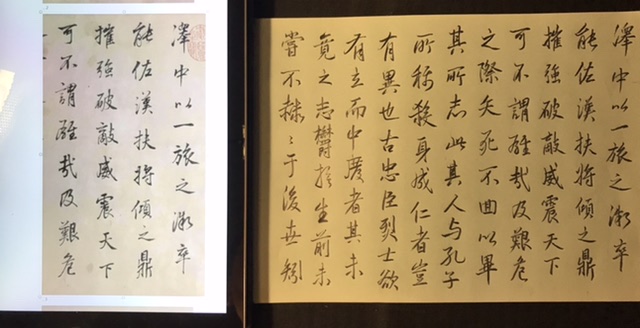 澤中以一旅之微卒
能佐漢扶將傾之鼎
摧強破敵威震天下
可不謂雄哉及艱危
澤中以一旅之微卒
能佐漢扶將傾之鼎
摧強破敵威震天下
可不謂雄哉及艱危
之際矢死不回以畢
其所志此其人与孔子
所称殺身成仁者豈
有異也古忠臣烈士欲
有立而中廢者其未
竟之志欝於生前未
嘗不赫〻于後世矧